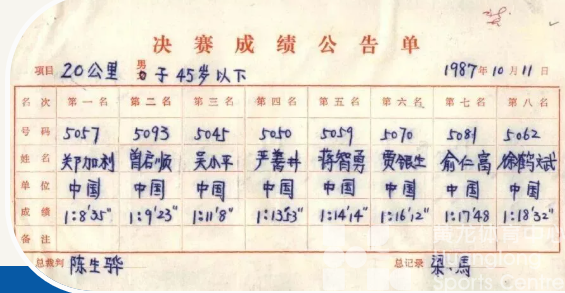 决赛成绩公告单
项目 20公里 男子 45岁以下 1987年10月11日
名次 第一名 第二名 第三名 第四名 第五名 第六名 第七名 第八名
号码 5057 5093 5045 5050 5059 5070 5081 5062
姓名 郑加利 曾启顺 吴小平 严善井 蒋智勇 贾银生 俞仁富 徐鹤斌
单位 中国 中国 中国 中国 中国 中国 中国 中国
成绩 1:8'35" 1:9'23" 1:11'8" 1:13'53" 1:14'14" 1:16'12" 1:17'48 1:18'32"
备注
总裁判 陈生骅 总记录
黄龙体育中心
Huanglong
Sports Centre